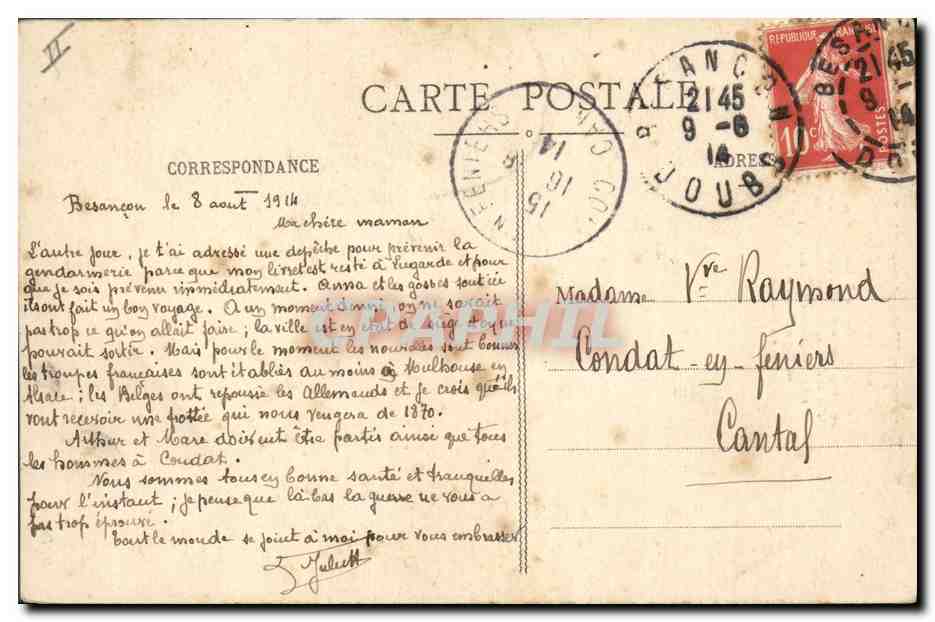 II
CARTE POSTALE
CORRESPONDANCE
ADRESSE
BESANÇON
21 45
9 - 8
14
DOUBS
REPUBLIQUE FRANÇAISE
10c
POSTES
BESANÇON
21 45
9 -
14
DOUBS
FENIERS
15
16
14
Besançon le 8 aout 1914
Ma chère maman
L'autre jour, je t'ai adressé une depêche pour prévenir la
gendarmerie parce que mon livret est resté à Lugarde et pour
que je sois prévenu immédiatement. Anna et les gosses sont ici
ils ont fait un bon voyage. A un moment donné, on ne savait
pas trop ce qu'on allait faire; la ville est en état de siège et on ne
pouvait sortir. Mais pour le moment les nouvelles sont bonnes
les troupes françaises sont établies au moins à Mulhouse en
Alsace; les Belges ont repoussé les Allemands et je crois qu'ils
vont recevoir une frottée qui nous vengera de 1870.
Arthur et Marc doivent être partis ainsi que tous
les hommes à Condat.
Nous sommes tous en bonne santé et tranquilles
pour l'instant; je pense que là-bas la guerre ne vous a
pas trop éprouvé.
Tout le monde se joint à moi pour vous embrasser
CPAPHIL
Madame Vve Raymond
Condat-en-feniers
Cantal